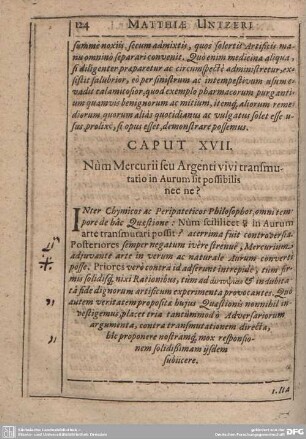 124 MATTHIÆ UNTZERI
summe noxiis, secum admixtis, quos solertis Artificis ma-
nu omnino separari convenit. Quo enim medicina aliqua
diligenter præparatur ac circumspectè administretur, ex-
sistit salubrior, eò per sinistrum ac intempestivum usum e-
vadit calamitosior, quod exemplo pharmacorum purganti-
um quamvis benignorum ac mitium, itemq; aliorum reme-
diorum, quorum aliàs quotidianus ac vulgatus solet esse u-
sus prolixè, si opus esset, demonstrare possemus.
CAPUT XVII.
Nùm Mercurii seu Argenti vivi transmu-
tatio in Aurum sit possibilis
nec ne?
INter Chymicos ac Peripateticos Philosophos, omni tem-
pore de hâc Quæstione: Num scilicet ☿ in Aurum
arte transmutari possit? acerrima fuit controversia.
Posteriores semper negatum ivêre strenuè, Mercurium,
adjuvante arte in verum ac naturale Aurum converti
posse. Priores verò contra id adserunt intrepidè, tùm fir-
mis solidisq; nixi Rationibus, tùm ad
tâ fide dignorum artificum experimenta provocantes. Quò
autem veritatem propositæ hujus Quæstionis nonnihil in-
vestigemus, placet tria tantummodò Adversariorum
argumenta, contra transmutationem directa,
hîc proponere nostramq; mox responsio-
nem solidissimam iisdem
subiicere.
1. Ita